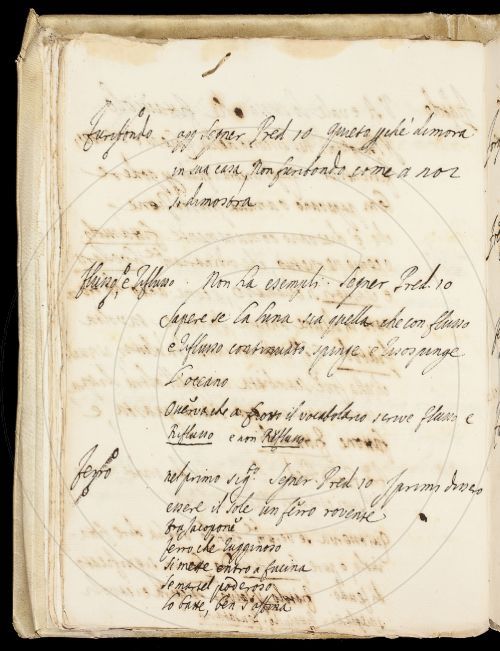 furibondo agg Segner Pred 10 Quieto pche dimora
in sua casa, Non furibondo come a noi
si dimostra
flusso, e riflusso. Non ha esempli. Segner Pred. 10
sapere se la luna sia quella che con flusso
e riflusso continuato spinge e risospinge
l'oceano
Osserva che a il vocabolario scrive flusso e
Riflusso e non Reflusso
ferro nel primo sig.to Segner Pred 10 I primi
essere il sole un ferro rovente
fra Jacopone
ferro che rugginoso
Si mette entro a fucina
Se martel poderoso
Lo batte, ben s'affina